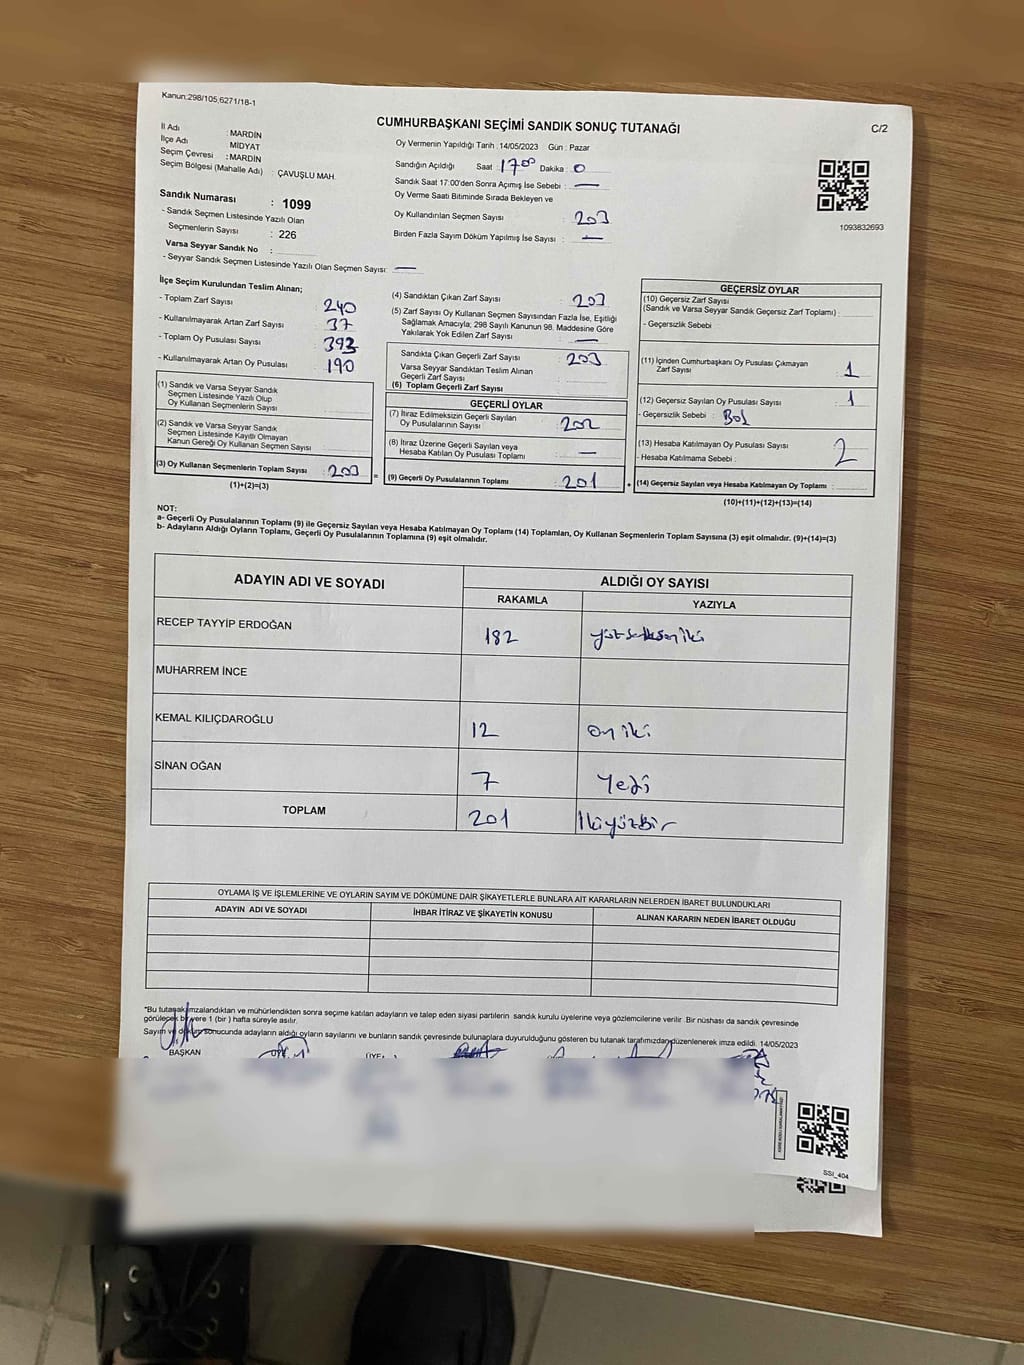 Kanun:298/105,6271/18-1
CUMHURBAŞKANI SEÇİMİ SANDIK SONUÇ TUTANAĞI
C/2
İl Adı : MARDİN
İlçe Adı : MİDYAT
Seçim Çevresi : MARDİN
Seçim Bölgesi (Mahalle Adı) : ÇAVUŞLU MAH.
Oy Vermenin Yapıldığı Tarih : 14/05/2023 Gün : Pazar
Sandığın Açıldığı Saat : 17 00 Dakika : 0
Sandık Saat 17:00'den Sonra Açımış İse Sebebi : —
Oy Verme Saati Bitiminde Sırada Bekleyen ve
Oy Kullandırılan Seçmen Sayısı : 203
Birden Fazla Sayım Döküm Yapılmış İse Sayısı : —
1093832693
Sandık Numarası : 1099
- Sandık Seçmen Listesinde Yazılı Olan
Seçmenlerin Sayısı : 226
Varsa Seyyar Sandık No :
- Seyyar Sandık Seçmen Listesinde Yazılı Olan Seçmen Sayısı: —
İlçe Seçim Kurulundan Teslim Alınan;
- Toplam Zarf Sayısı 240
- Kullanılmayarak Artan Zarf Sayısı : 37
- Toplam Oy Pusulası Sayısı : 393
- Kullanılmayarak Artan Oy Pusulası : 190
(1) Sandık ve Varsa Seyyar Sandık
Seçmen Listesinde Yazılı Olup
Oy Kullanan Seçmenlerin Sayısı :
(2) Sandık ve Varsa Seyyar Sandık
Seçmen Listesinde Kayıtlı Olmayan
Kanun Gereği Oy Kullanan Seçmen Sayısı :
(3) Oy Kullanan Seçmenlerin Toplam Sayısı : 203 =
(1)+(2)=(3)
(4) Sandıktan Çıkan Zarf Sayısı : 203
(5) Zarf Sayısı Oy Kullanan Seçmen Sayısından Fazla İse, Eşitliği
Sağlamak Amacıyla; 298 Sayılı Kanunun 98. Maddesine Göre
Yakılarak Yok Edilen Zarf Sayısı : —
Sandıkta Çıkan Geçerli Zarf Sayısı : 203
Varsa Seyyar Sandıktan Teslim Alınan
Geçerli Zarf Sayısı :
(6) Toplam Geçerli Zarf Sayısı
GEÇERLİ OYLAR
(7) İtiraz Edilmeksizin Geçerli Sayılan
Oy Pusulalarının Sayısı : 202
(8) İtiraz Üzerine Geçerli Sayılan veya
Hesaba Katılan Oy Pusulası Toplamı : —
(9) Geçerli Oy Pusulalarının Toplamı : 201 +
GEÇERSİZ OYLAR
(10) Geçersiz Zarf Sayısı
(Sandık ve Varsa Seyyar Sandık Geçersiz Zarf Toplamı) :
- Geçersizlik Sebebi :
(11) İçinden Cumhurbaşkanı Oy Pusulası Çıkmayan
Zarf Sayısı : 1
(12) Geçersiz Sayılan Oy Pusulası Sayısı : 1
- Geçersizlik Sebebi : Boş
(13) Hesaba Katılmayan Oy Pusulası Sayısı : 2
- Hesaba Katılmama Sebebi :
(14) Geçersiz Sayılan veya Hesaba Katılmayan Oy Toplamı :
(10)+(11)+(12)+(13)=(14)
NOT:
a- Geçerli Oy Pusulalarının Toplamı (9) ile Geçersiz Sayılan veya Hesaba Katılmayan Oy Toplamı (14) Toplamları, Oy Kullanan Seçmenlerin Toplam Sayısına (3) eşit olmalıdır. (9)+(14)=(3)
b- Adayların Aldığı Oyların Toplamı, Geçerli Oy Pusulalarının Toplamına (9) eşit olmalıdır.
ADAYIN ADI VE SOYADI
ALDIĞI OY SAYISI
RAKAMLA YAZIYLA
RECEP TAYYİP ERDOĞAN 182 yüzseksen iki
MUHARREM İNCE
KEMAL KILIÇDAROĞLU 12 on iki
SİNAN OĞAN 7 Yedi
TOPLAM 201 İkiyüzbir
OYLAMA İŞ VE İŞLEMLERİNE VE OYLARIN SAYIM VE DÖKÜMÜNE DAİR ŞİKAYETLERLE BUNLARA AİT KARARLARIN NELERDEN İBARET BULUNDUKLARI
ADAYIN ADI VE SOYADI İHBAR İTİRAZ VE ŞİKAYETİN KONUSU ALINAN KARARIN NEDEN İBARET OLDUĞU
*Bu tutanak imzalandıktan ve mühürlendikten sonra seçime katılan adayların ve talep eden siyasi partilerin sandık kurulu üyelerine veya gözlemcilerine verilir. Bir nüshası da sandık çevresinde
görülecek bir yere 1 (bir ) hafta süreyle asılır.
Sayım ve döküm sonucunda adayların aldığı oyların sayılarını ve bunların sandık çevresinde bulunanlara duyurulduğunu gösteren bu tutanak tarafımızdan düzenlenerek imza edildi. 14/05/2023
BAŞKAN
SSI_404